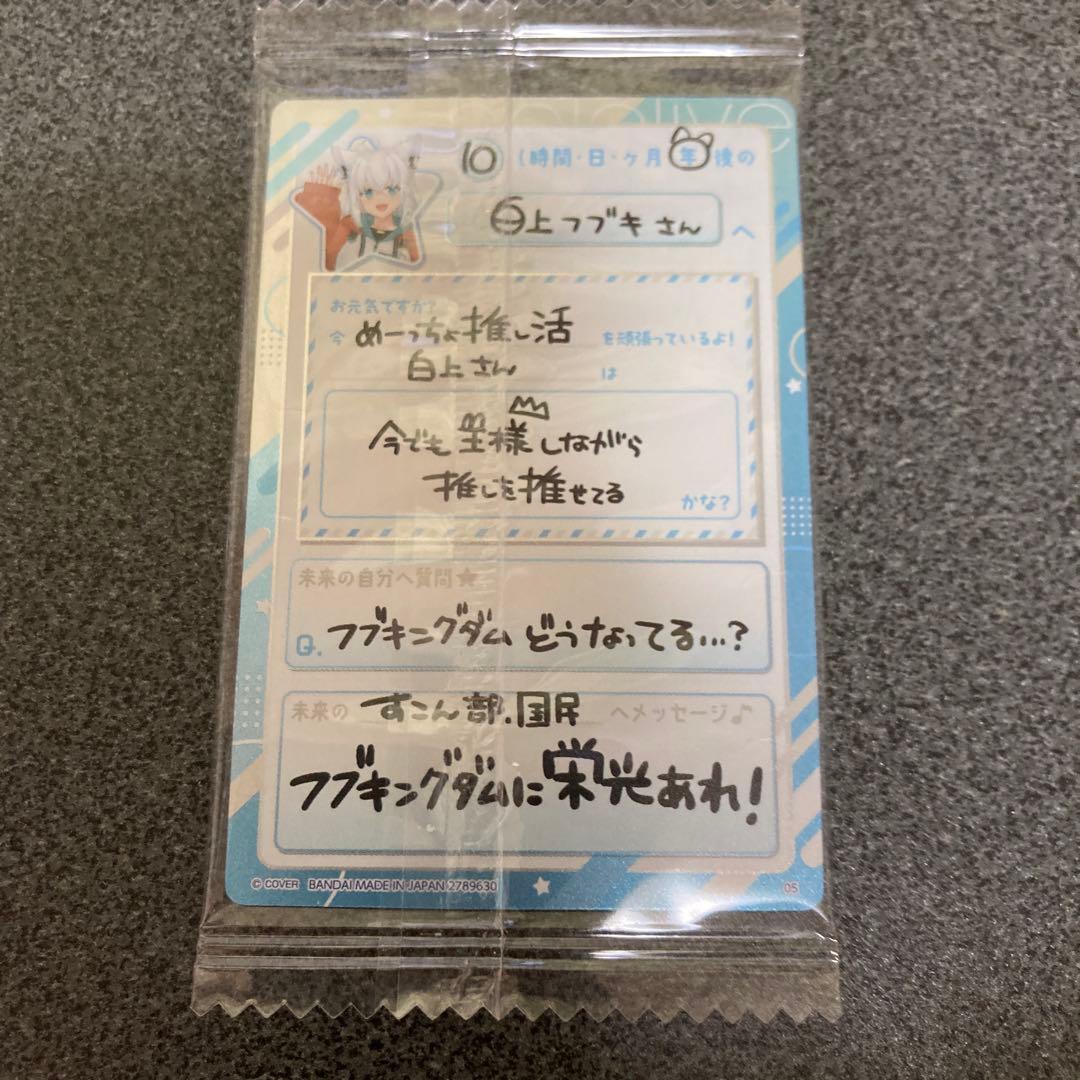 hololive
10 (時間・日・ヶ月 年 後の
白上フブキさん へ
お元気ですか?
今 めーっちゃ推し活 を頑張っているよ!
白上さん は
今でも王様しながら
推しを推せてる かな?
未来の自分へ質問★
Q. フブキングダムどうなってる...?
未来の すこん部、国民 へメッセージ♪
フブキングダムに栄光あれ!
© COVER BANDAI MADE IN JAPAN 2789630 05